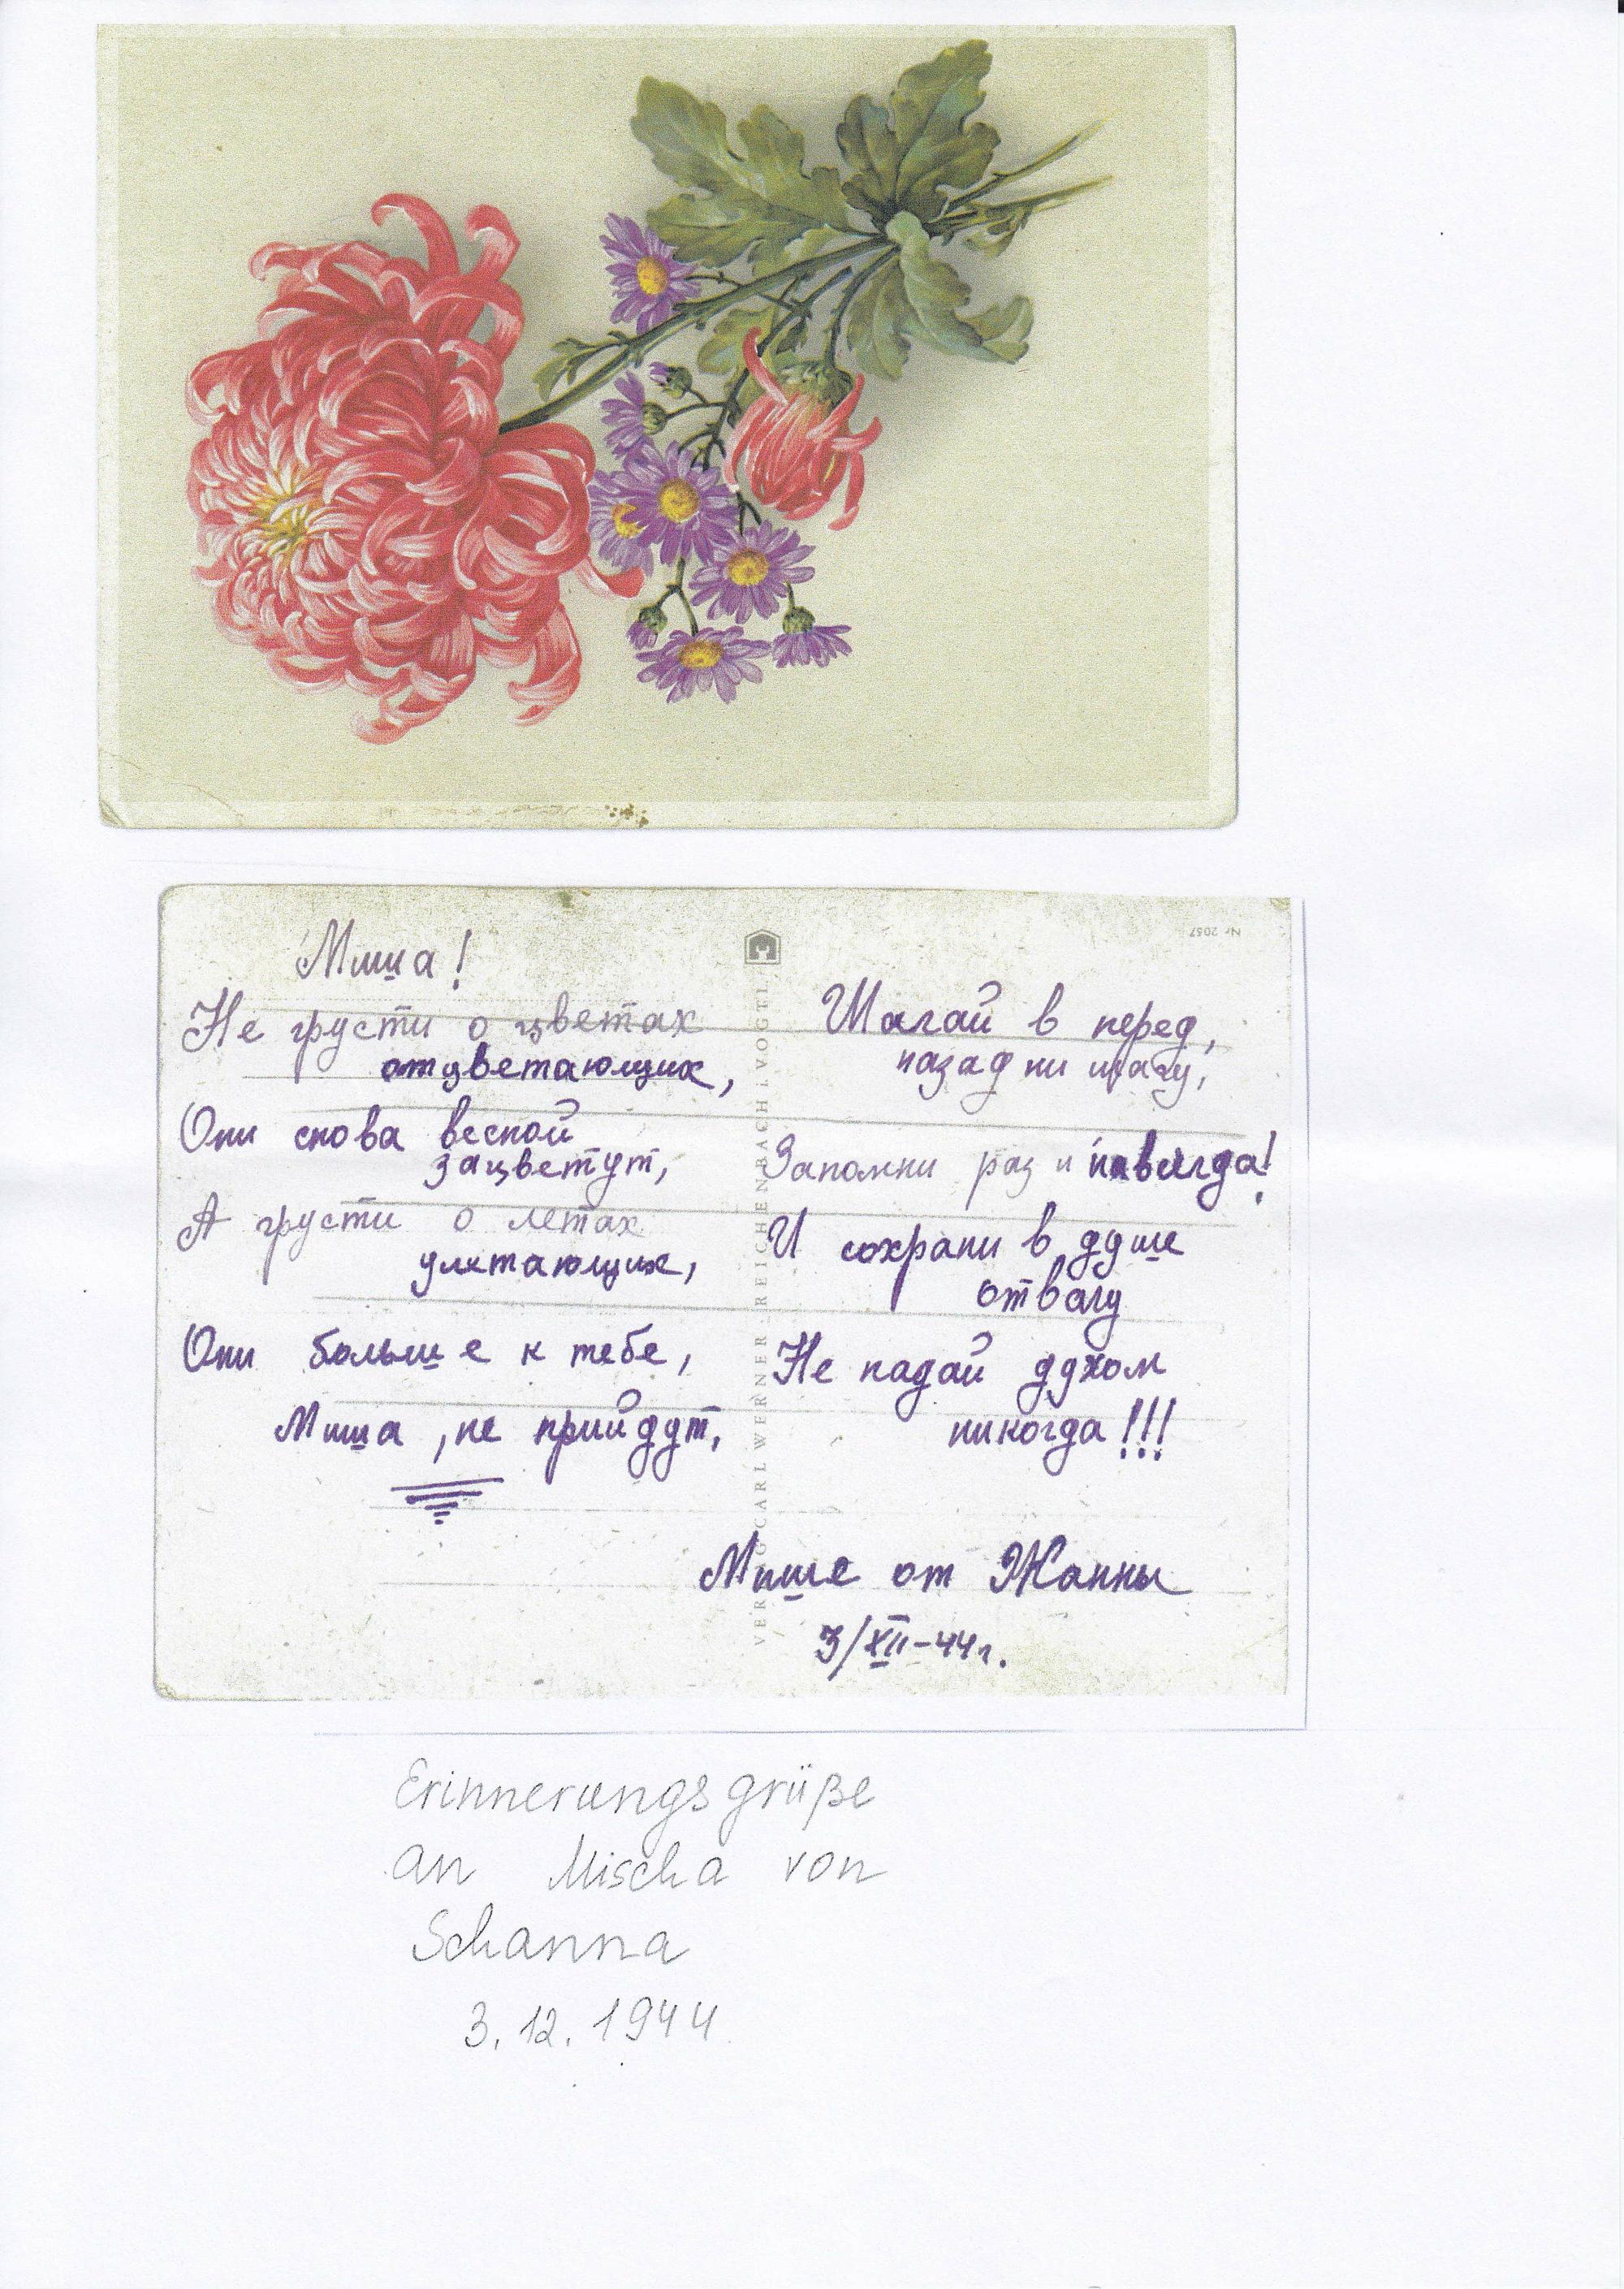 Миша!
Не грусти о цветах
отцветающих,
Они снова весной
зацветут,
А грусти о летах
улетающих,
Они больше к тебе,
Миша, не прийдут,
Nr 2057
VERLAG CARL WERNER, REICHENBACH I. VOGTL.
Шагай в перед,
назад ни шагу,
Запомни раз и навсегда!
И сохрани в душе
отвагу
Не падай духом
никогда!!!
Мише от Жанны
3/XII-44г.
Erinnerungsgrüße
an Mischa von
Schanna
3.12.1944